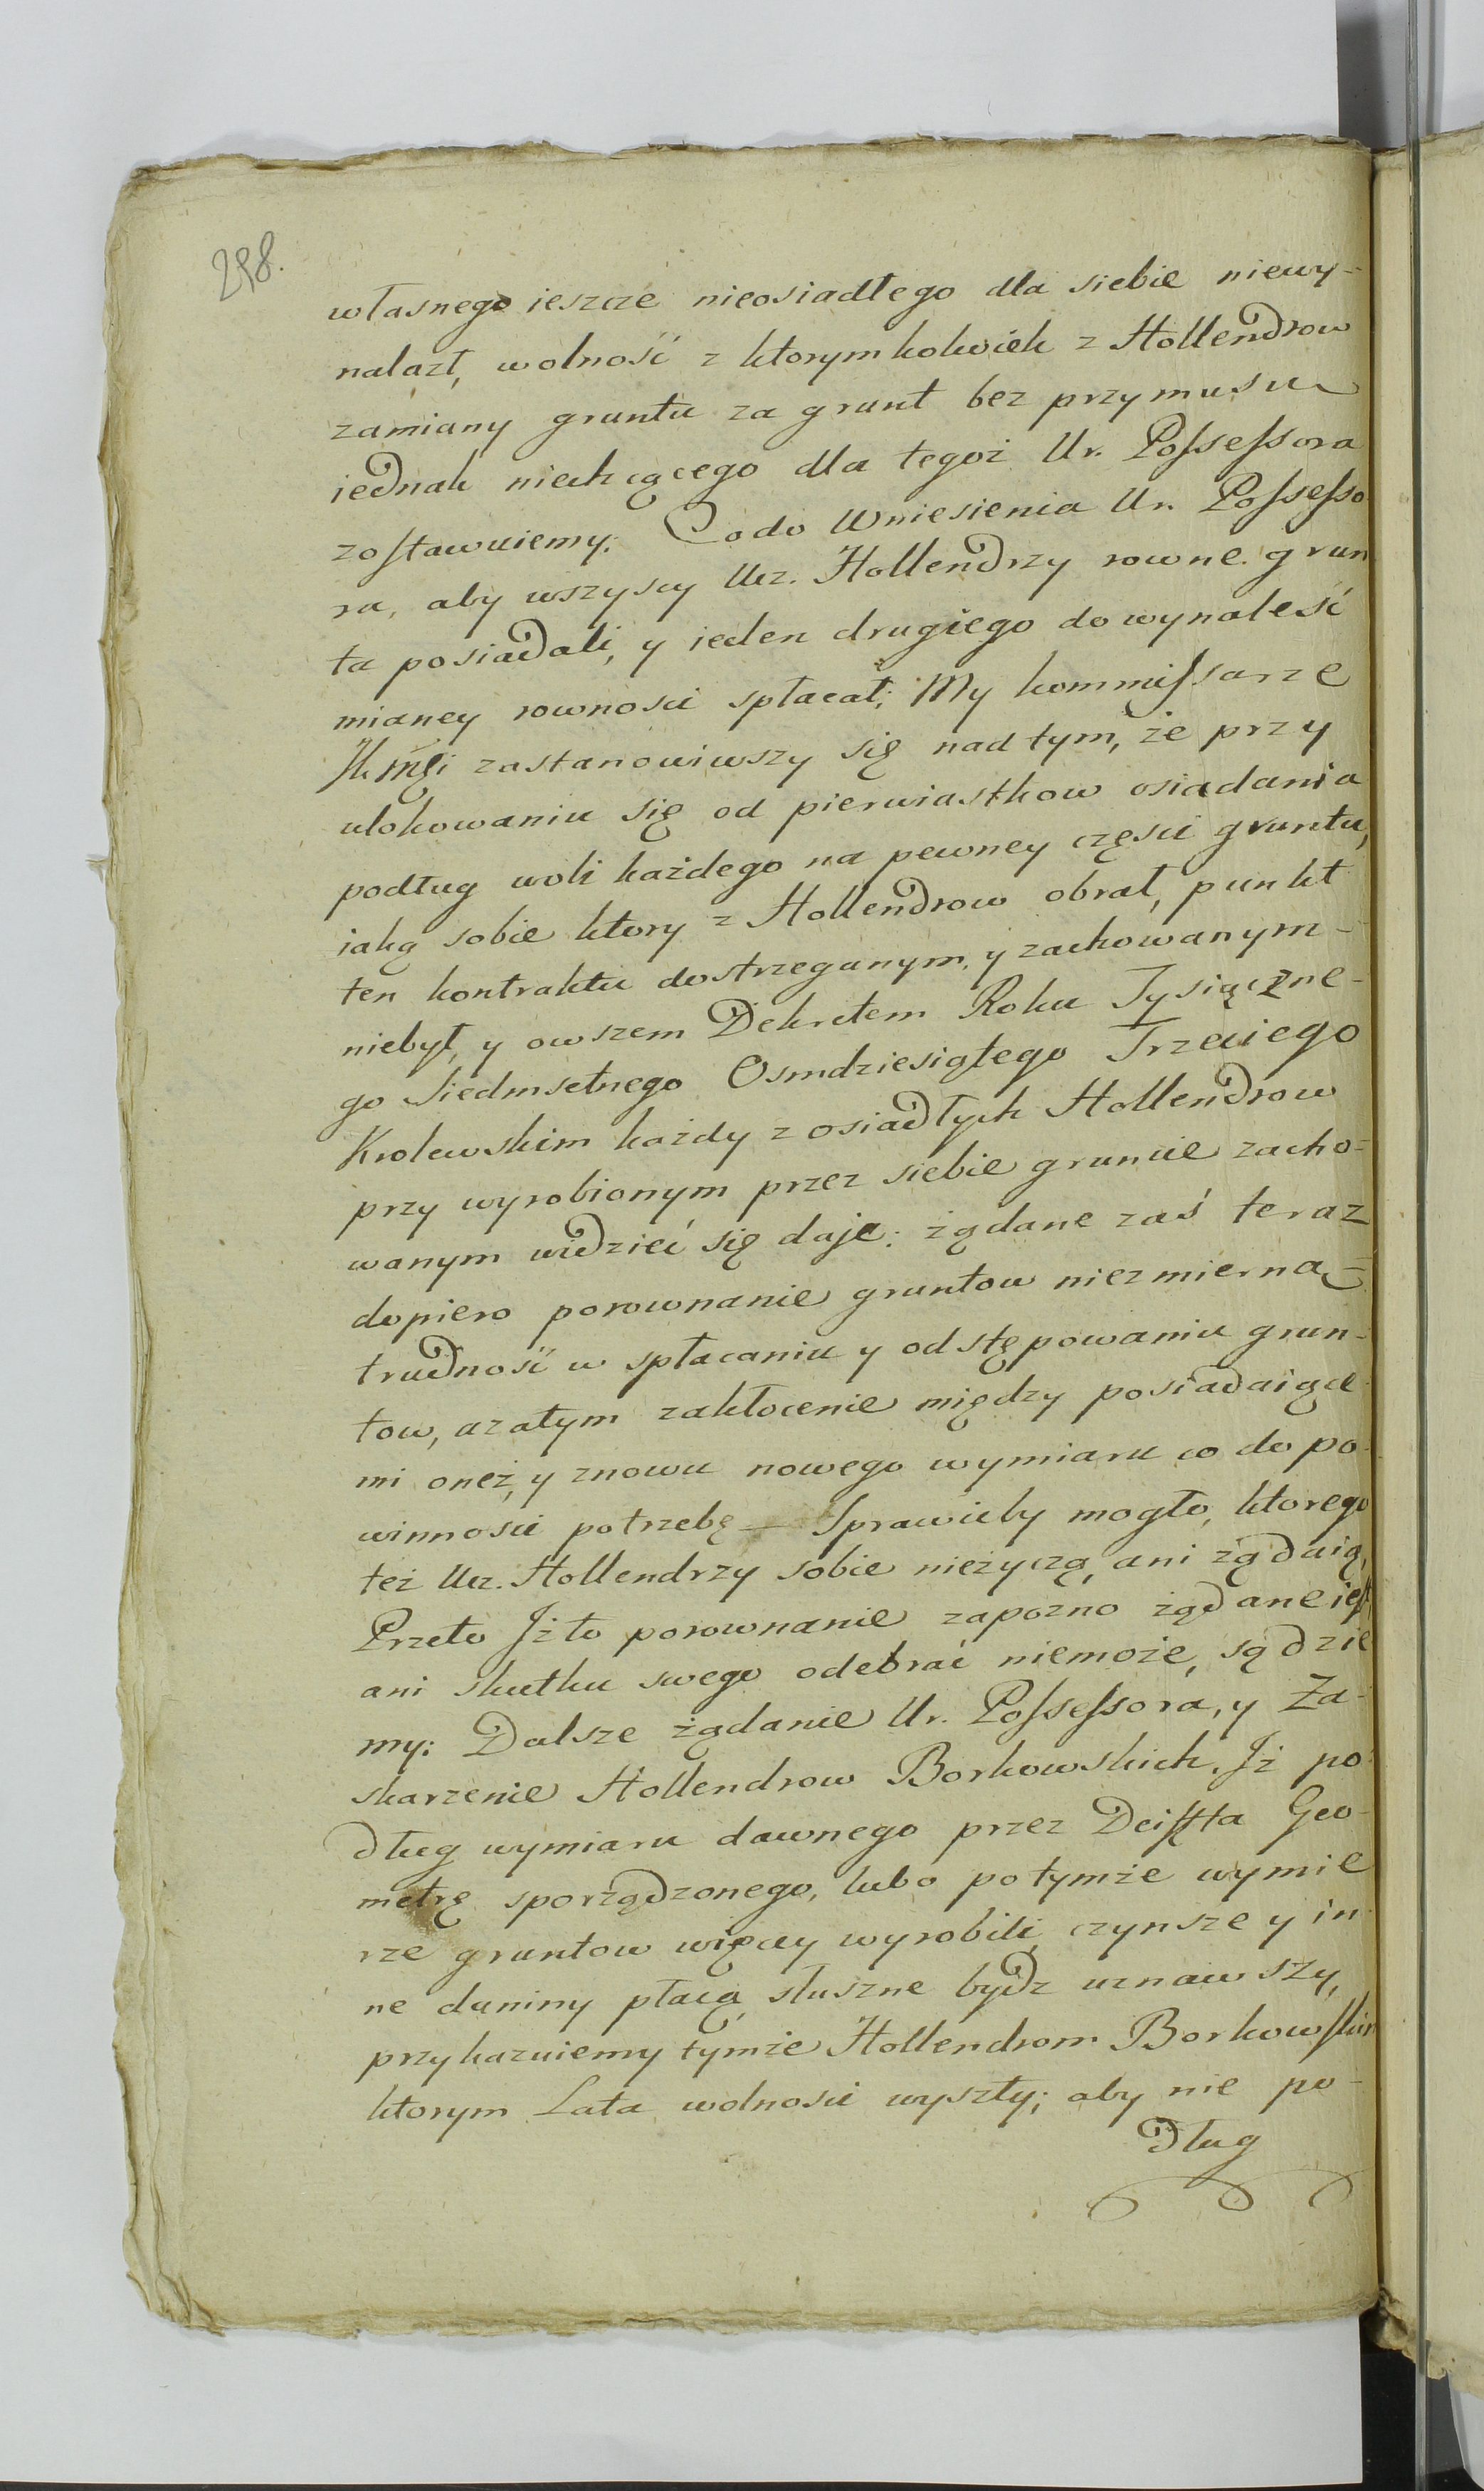 298.
własnego ieszcze nieosiadłego dla siebie niewy-
nalazł, wolność z ktorymkolwiek z Hollendrow
zamiany gruntu za grunt bez przymusu
iednak niechcącego dla tegoż Ur. Possessora
zostawuiemy: Co do Wniesienia Ur. Possesso
ra, aby wszyscy Ucz. Hollendrzy rowne grun
ta posiadali, y ieden drugiego do wynaleść
mianey rownosci spłacał; My kommissarze
JKMći zastanowiwszy się nad tym, że przy
ulokowaniu się od pierwiastkow osiadania
podług woli każdego na pewney częsci gruntu,
iaką sobie ktory z Hollendrow obrał, punkt
ten kontraktu dostrzeganym, y zachowanym-
niebył, y owszem Dekretem Roku Tysiączne-
go Siedmsetnego Osmdziesiątego Trzeciego
Krolewskim każdy z osiadłych Hollendrow
przy wyrobionym przez siebie gruncie zacho-
wanym widzieć się daje: żądane zaś teraz
dopiero porownanie gruntow niezmierną-
trudność w spłacaniu y odstępowaniu grun-
tow, azatym zakłocenie między posiadaiące
mi oneż, y znowu nowego wymiaru co do po-
winnosci potrzebę — Sprawicby mogło, ktorego
też Ucz. Hollendrzy sobie nieżyczą, ani żądaią,
Przeto Jż to porownanie zapozno żądane iest,
ani skutku swego odebrać niemoże, sądzie
my: Dalsze żądanie Ur. Possessora, y Za-
skarzenie Hollendrow Borkowskich, Jż po
dług wymiaru dawnego przez Deissta Geo-
metrę sporządzonego, lubo po tymże wymie
rze gruntow więcey wyrobili, czynsze y in-
ne daniny płacą, słuszne bydz uznawszy,
przykazuiemy tymże Hollendrom Borkowskim
ktorym Lata wolnosci wyszły; aby nie po-
dług